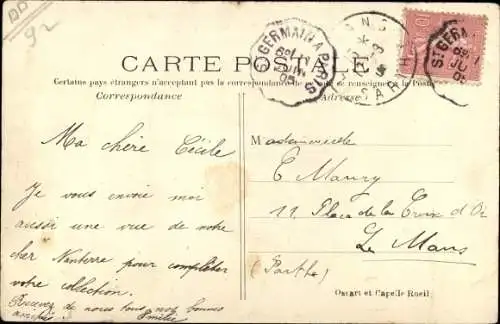 92
CARTE POSTALE
ST GERMAIN A PARIS
ST GERMAIN
Certains pays étrangers n'acceptant pas la correspondance se renseigner à la Poste
Correspondance
Adresse
Ma chère Cécile
Je vous envoie moi
aussi une vue de notre
cher Nanterre pour compléter
votre collection.
Recevez de nous tous nos bonnes
Emilie
Mademoiselle
E Maury
11 Place de la Croix d'Or
Le Mans
(Sarthe)
Oscart et Capelle Rueil